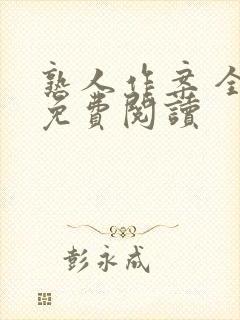 熟人作案全
免費閱讀
彭永成